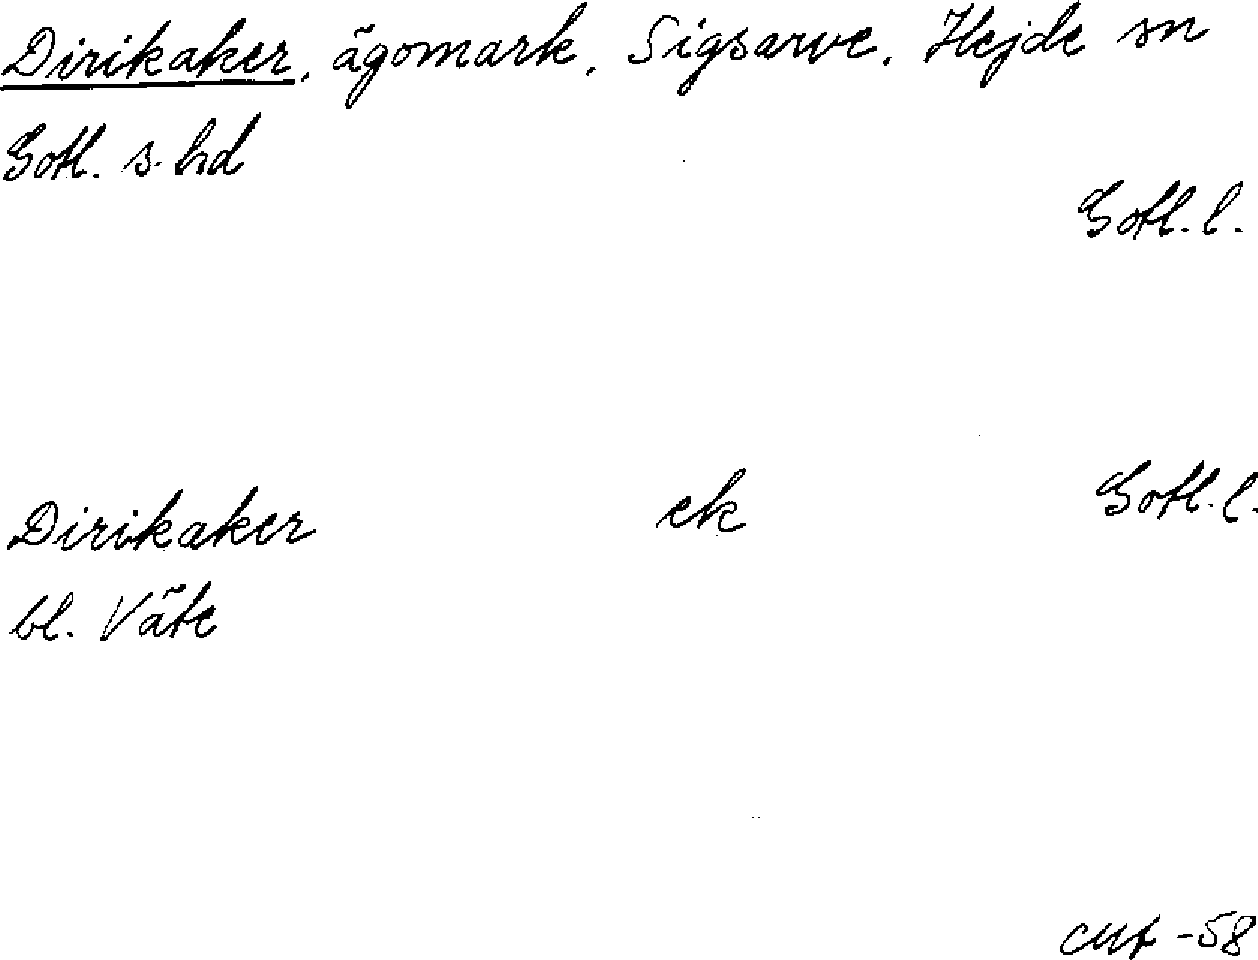 Dirikaker, ägomark, Sigsarve, Hejde sn
Gotl. s. hd
Gotl. l.
Dirikaker ek Gotl. l.
bl. Väte
-58